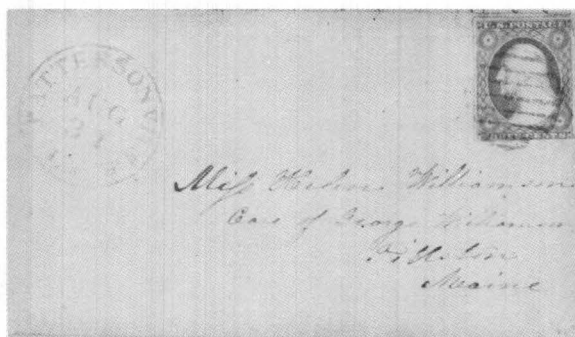 PATTERSONVILLE
AUG
U.S. POSTAGE
THREE CENTS
Miss Williamson
Care of George Williamson
Pittston
Maine